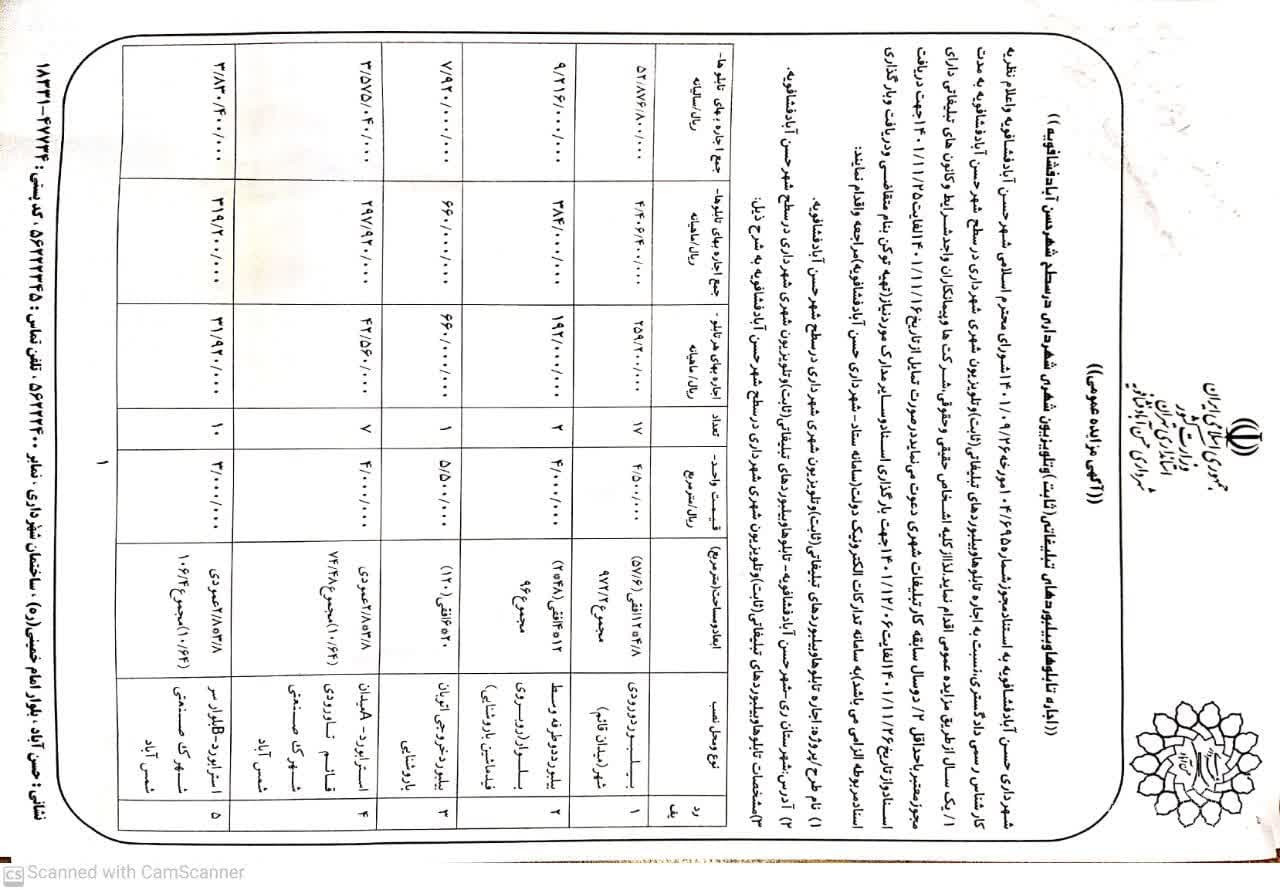 جمهوری اسلامی ایران
وزارت کشور
استانداری تهران
شهرداری حسن آباد فشافویه
((آگهی مزایده عمومی))
((اجاره تابلوهاوبیلبوردهای تبلیغاتی(ثابت)وتلویزیون شهری شهرداری درسطح شهرحسن آبادفشافویه))
شهرداری حسن آبادفشافویه به استنادمجوزشماره۱۰۴/۶۹۵مورخه۱۴۰۱/۰۹/۲۶شورای محترم اسلامی شهرحسن آبادفشافویه واعلام نظریه
کارشناس رسمی دادگستری،نسبت به اجاره تابلوهاوبیلبوردهای تبلیغاتی(ثابت)وتلویزیون شهری شهرداری درسطح شهرحسن آبادفشافویه به مدت
۱/ یک سال ازطریق مزایده عمومی اقدام نماید.لذاازکلیه اشخاص حقیقی وحقوقی،شرکت ها وپیمانکاران واجدشرایط وکانون های تبلیغاتی دارای
مجوزمعتبرباحداقل ۲/ دوسال سابقه کارتبلیغات شهری دعوت می نمایددرصورت تمایل ازتاریخ۱۴۰۱/۱۱/۱۶لغایت۱۴۰۱/۱۱/۲۵جهت دریافت
اسنادوازتاریخ۱۴۰۱/۱۱/۲۶لغایت۱۴۰۱/۱۲/۰۶جهت بارگذاری اسنادوسایرمدارک موردنیاز(تهیه توکن بنام متقاضی ودریافت وبارگذاری
اسنادمربوطه الزامی می باشد)به سامانه تدارکات الکترونیک دولت(سامانه ستاد- شهرداری حسن آبادفشافویه)مراجعه واقدام نمایند:
۱) نام طرح/پروژه: اجاره تابلوهاوبیلبوردهای تبلیغاتی(ثابت)وتلویزیون شهری شهرداری درسطح شهرحسن آبادفشافویه.
۲) آدرس:شهرستان ری-شهرحسن آبادفشافویه- تابلوهاوبیلبوردهای تبلیغاتی(ثابت)وتلویزیون شهری شهرداری درسطح شهرحسن آبادفشافویه.
۳)مشخصات تابلوهاوبیلبوردهای تبلیغاتی(ثابت)وتلویزیون شهری شهرداری درسطح شهرحسن آبادفشافویه به شرح ذیل:
ردیف نوع ومحل نصب ابعادومساحت(مترمربع) قیمت واحد-ریال/مترمربع تعداد اجاره بهای هرتابلو-ریال/ماهیانه جمع اجاره بهای تابلوها-ریال/ماهیانه جمع اجاره بهای تابلو ها-ریال/سالیانه
۱ بیلبوردورودی شهر(میدان قائم) ۱۲٥۴/۸افقی(۵۷/۶)مجموع۹۷۲/۲ ۴/۵۰۰/۰۰۰ ۱۷ ۲۵۹/۲۰۰/۰۰۰ ۴/۴۰۶/۴۰۰/۰۰۰ ۵۲/۸۷۶/۸۰۰/۰۰۰
۲ بیلبورددوطرفه وسط بلوار(روبروی فیدماشین باروشنایی) ۴٥۱۲افقی(۲٥۴۸)مجموع۹۶ ۴/۰۰۰/۰۰۰ ۲ ۱۹۲/۰۰۰/۰۰۰ ۳۸۴/۰۰۰/۰۰۰ ۹/۲۱۶/۰۰۰/۰۰۰
۳ بیلبوردخروجی اتوبان باروشنایی ۶٥۲۰افقی(۱۲۰) ۵/۵۰۰/۰۰۰ ۱ ۶۶۰/۰۰۰/۰۰۰ ۶۶۰/۰۰۰/۰۰۰ ۷/۹۲۰/۰۰۰/۰۰۰
۴ استرابورد- Aمیدان قائم تاورودی شهرک صنعتی شمس آباد ۲/۸٥۳/۸عمودی(۱۰/۶۴)مجموع۷۴/۴۸ ۴/۰۰۰/۰۰۰ ۷ ۴۲/۵۶۰/۰۰۰ ۲۹۷/۹۲۰/۰۰۰ ۳/۵۷۵/۰۴۰/۰۰۰
۵ استرابورد-Bبلوار سر شهرک صنعتی شمس آباد ۲/۸٥۳/۸عمودی(۱۰/۶۴)مجموع۱۰۶/۴ ۳/۰۰۰/۰۰۰ ۱۰ ۳۱/۹۲۰/۰۰۰ ۳۱۹/۲۰۰/۰۰۰ ۳/۸۳۰/۴۰۰/۰۰۰
۱
نشانی : حسن آباد ، بلوار امام خمینی(ره) ، ساختمان شهرداری ، نمابر ۵۶۲۲۳۴۰۰ ، تلفن تماس : ۵۶۲۲۲۳۴۵ ، کد پستی : ۴۷۷۳۴-۱۸۳۳۱
CS Scanned with CamScanner